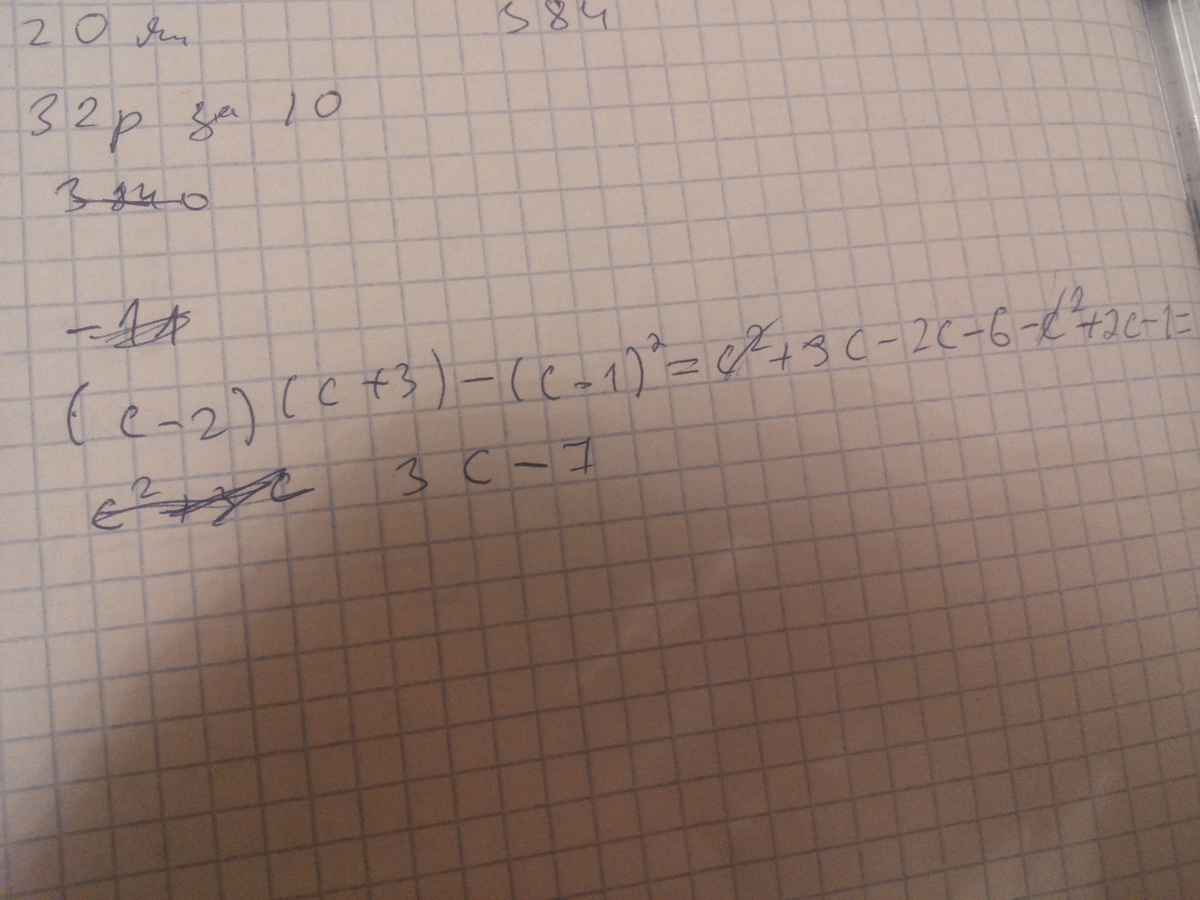 20 яиц 384
32р за 10
3840
(c-2)(c+3)-(c-1)²=c²+3c-2c-6-c²+2c-1=
c²+3c 3c-7